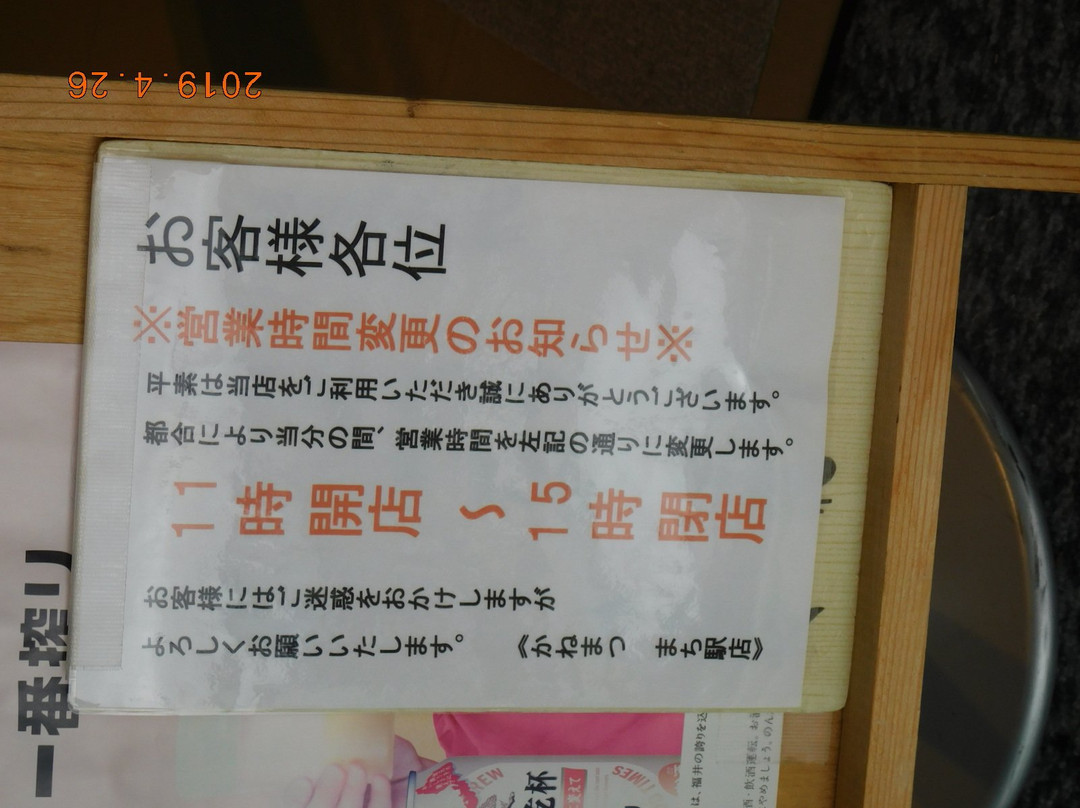 2019.4.26
お客様各位
※営業時間変更のお知らせ※
平素は当店をご利用いただき誠にありがとうございます。
都合により当分の間、営業時間を左記の通りに変更します。
11時開店 ~ 15時閉店
お客様にはご迷惑をおかけしますが
よろしくお願いいたします。 《かねまつ まち駅店》
一番搾り
は、福井の誇りを込
酒・飲酒運転、お
やめましょう。のん
乾杯